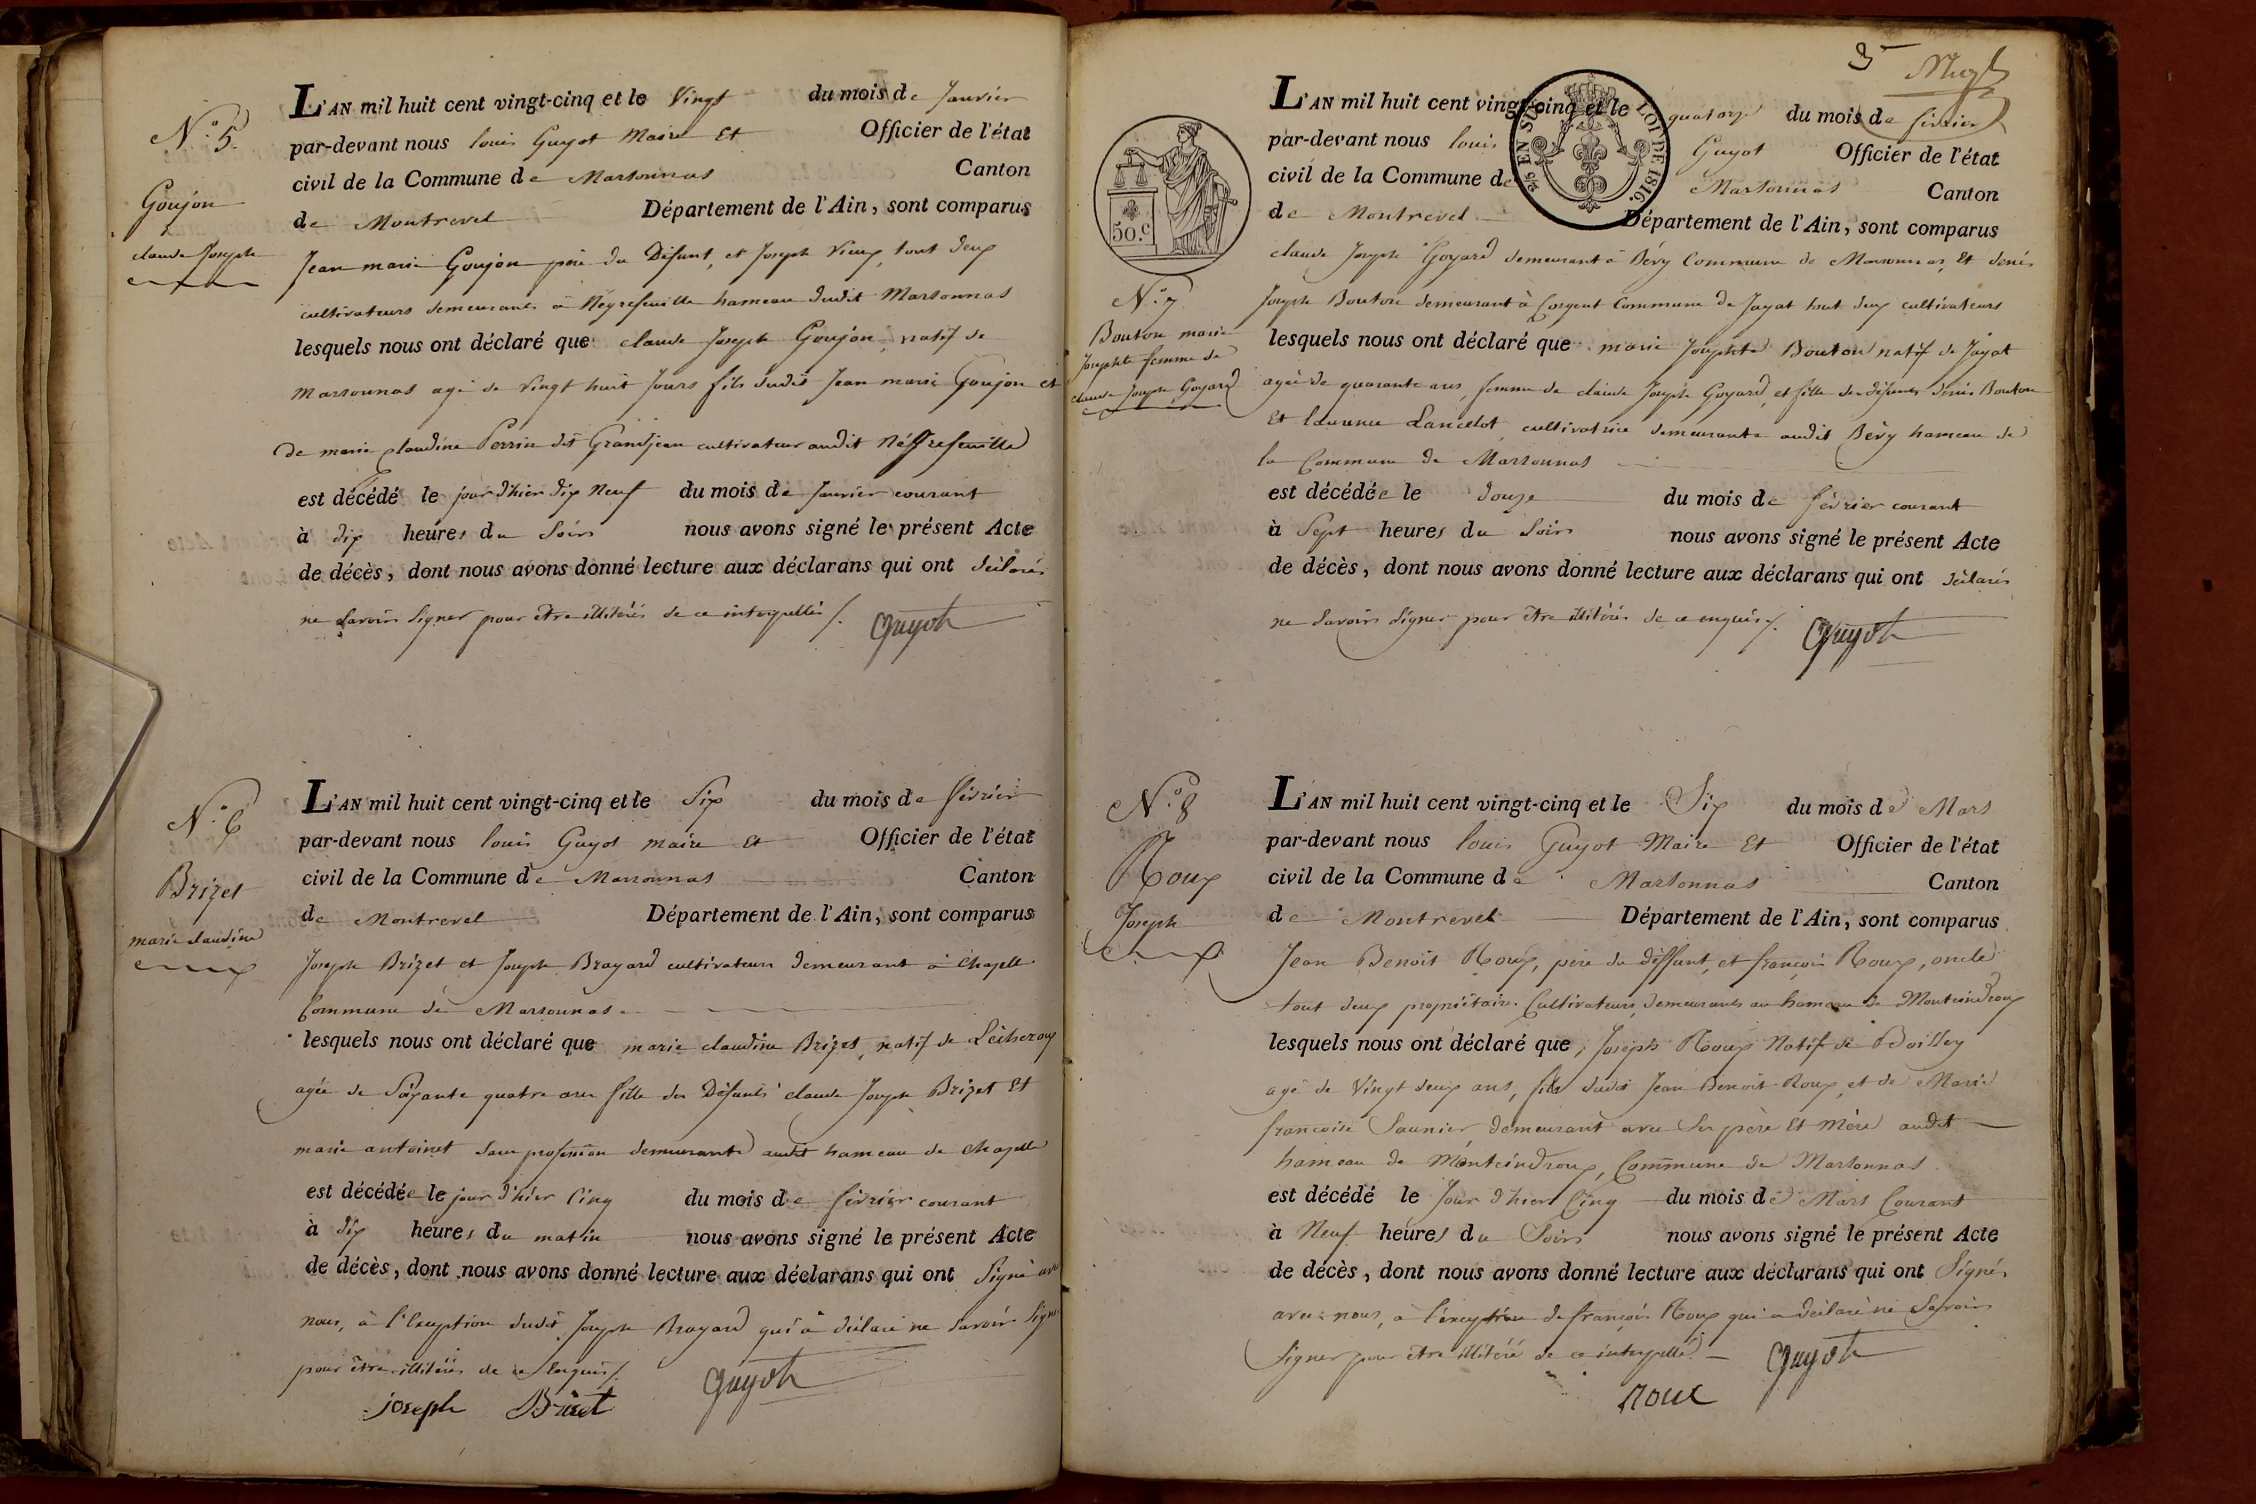 N.° 5.
Goujon
claude Joseph
L'AN mil huit cent vingt-cinq et le Vingt du mois de Janvier
par-devant nous louis Guyot Maire Et Officier de l'état
civil de la Commune de Marsonnas Canton
de Montrevel Département de l'Ain, sont comparus
Jean marie Goujon père du Défunt, et Joseph Vieux, tout deux
cultivateurs demeurants à Négrefeuille hameau dudit Marsonnas
lesquels nous ont déclaré que claude Joseph Goujon, natif de
Marsonnas agé de Vingt huit Jours fils dudit Jean marie Goujon et
De marie claudine Perrin dit Grandjean cultivateur audit Négrefeuille
est décédé le jour d'hier dix Neuf du mois de Janvier courant
à dix heures du Soir nous avons signé le présent Acte
de décès, dont nous avons donné lecture aux déclarans qui ont déclarés
ne Savoir Signer pour être illitérés de ce interpellés /. Guyot
N.° 6
Brizet
marie claudine
L'AN mil huit cent vingt-cinq et le Six du mois de février
par-devant nous louis Guyot maire Et Officier de l'état
civil de la Commune de Marsonnas Canton
de Montrevel Département de l'Ain, sont comparus
Joseph Brizet et Joseph Brayard cultivateurs demeurant à Chapelle
Commune de Marsonnas
lesquels nous ont déclaré que marie claudine Brizet, natif de Lécheroux
agée de Soixante quatre ans fille des Défunts claude Joseph Brizet Et
marie antoinet Sans profession demeurante audit hameau de chapelle
est décédée le jour d'hier Cinq du mois de février courant
à dix heures du matin nous avons signé le présent Acte
de décès, dont nous avons donné lecture aux déclarans qui ont Signé avec
nous, à l'Exception dudit Joseph Brayard qui a déclaré ne Savoir Signer
pour être illitérés de ce Enquis /. Guyot
joseph Brizet
3
L'AN mil huit cent vingt-cinq et le quatorze du mois de février
par-devant nous louis Guyot Officier de l'état
civil de la Commune de Marsonnas Canton
de Montrevel Département de l'Ain, sont comparus
EN SUS LOI DE 1816.
50.c
N.° 7
Bouton marie
Josephte femme de
claude Joseph Goyard
claude Joseph Goyard demeurant à Bévy Commune de Marsonnas, Et denis
Joseph Bouton demeurant à Corgent Commune de Jayat tout deux cultivateurs
lesquels nous ont déclaré que marie Josephte Bouton natif de Jayat
agée de quarante ans, femme de claude Joseph Goyard, et fille des défunts denis Bouton
Et Laurence Lancelot, cultivatrice demeurante audit Bévy hameau de
la Commune de Marsonnas
est décédée le douze du mois de février courant
à Sept heures du Soir nous avons signé le présent Acte
de décès, dont nous avons donné lecture aux déclarans qui ont déclarés
ne Savoir Signer pour être illitérés de ce enquis /. Guyot
N.° 8
Roux
Joseph
L'AN mil huit cent vingt-cinq et le Six du mois de Mars
par-devant nous louis Guyot Maire Et Officier de l'état
civil de la Commune de Marsonnas Canton
de Montrevel Département de l'Ain, sont comparus
Jean Benoit Roux, père du déffunt, et françois Roux, oncle
tout deux propriétaires Cultivateurs, demeurants au hameau de Montcindroux
lesquels nous ont déclaré que, Joseph Roux Natif de Boissey
agé de Vingt deux ans, fils dudit Jean Benoit Roux, et de Marie
françoise Saunier, demeurant avec Ses père Et Mère audit
hameau de Montcindroux, Commune de Marsonnas
est décédé le Jour d'hier Cinq du mois de Mars Courant
à Neuf heures du Soir nous avons signé le présent Acte
de décès, dont nous avons donné lecture aux déclarans qui ont Signés
avec nous, à l'éxception de françois Roux qui a déclaré ne Savoir
Signer pour être illitéré de ce interpellé Guyot
roux